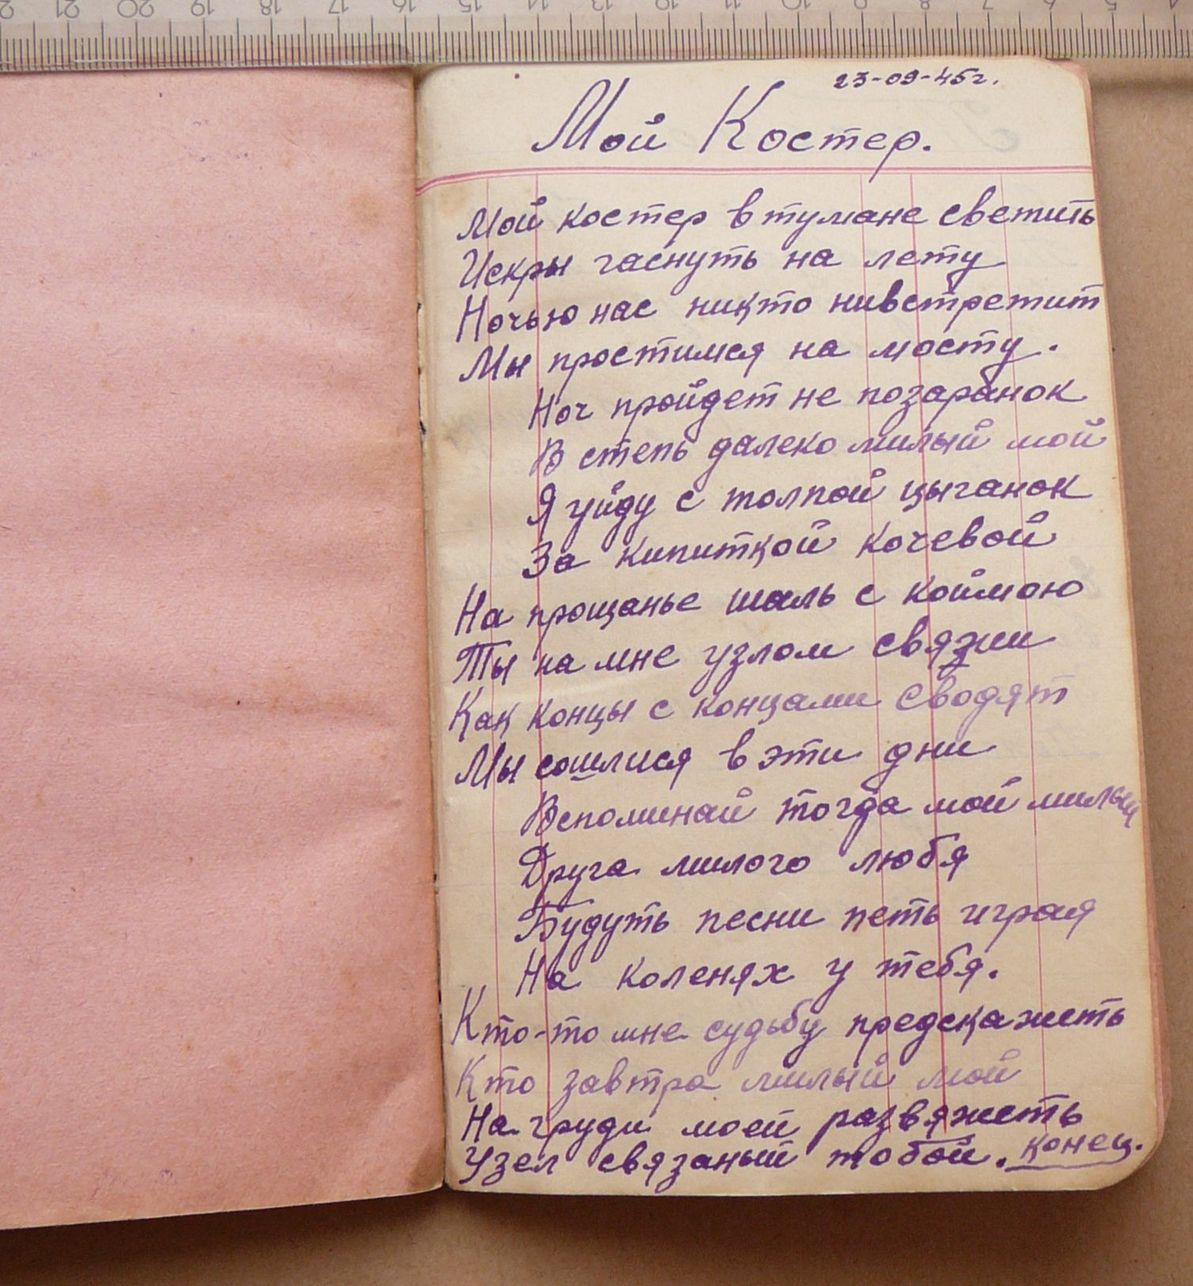 20 19 18 17 16 15 14 13 12 11 10 9 8 7 6 5 4
23-09-45г.
Мой Костер.
Мой костер в тумане светить
Искры гаснуть на лету
Ночью нас никто нивстретит
Мы простимся на мосту.
Ноч пройдет не позаранок
В степь далеко милый мой
Я уйду с толпой цыганок
За кипиткой кочевой
На прощанье шаль с коймою
Ты на мне узлом свяжи
Как концы с концами сводят
Мы сошлися в эти дни
Вспоминай тогда мой милый
Друга милого любя
Будуть песни петь играя
На коленях у тебя.
Кто-то мне судьбу предскажеть
Кто завтра милый мой
На груди моей развяжеть
Узел связаный тобой. конец.